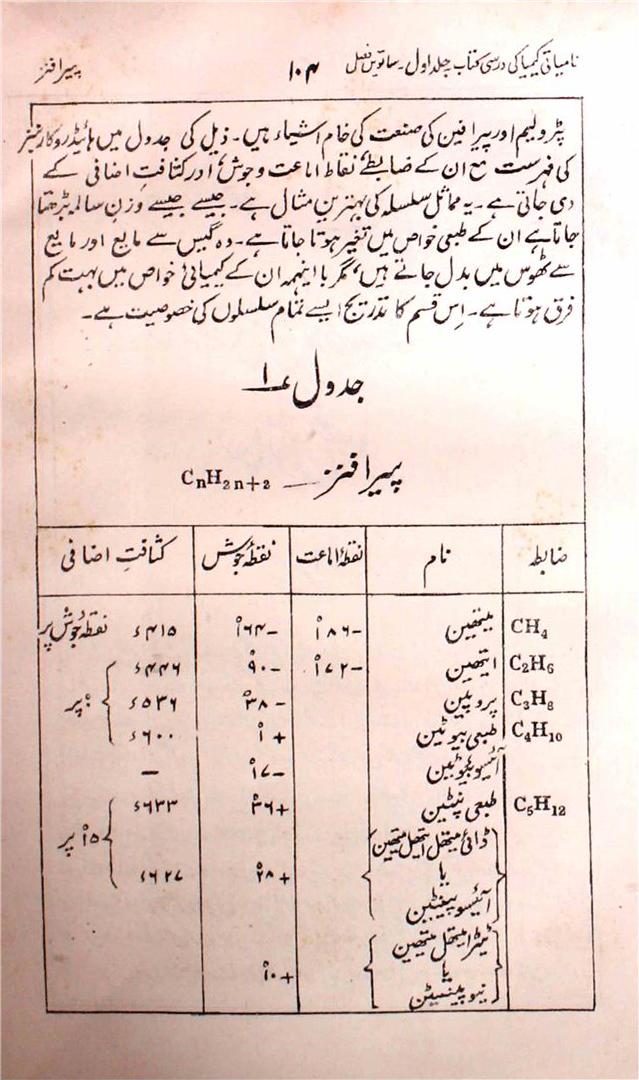 نامیاتی کیمیا کی درسی کتاب جلد اول۔ ساتویں فصل ۱۰۴ پیرافنز
پٹرولیم اور پیرافین کی صنعت کی خام اشیاء ہیں۔ ذیل کی جدول میں ہائیڈروکاربنز
کی فہرست مع ان کے ضابطے نقاط اماعت وجوش اور کثافتِ اضافی کے
دی جاتی ہے۔ یہ مماثل سلسلہ کی بہترین مثال ہے۔ جیسے جیسے وزن سالمہ بڑھتا
جاتا ہے ان کے طبعی خواص میں تغیر ہوتا جاتا ہے۔ وہ گیس سے مایع اور مایع
سے ٹھوس میں بدل جاتے ہیں، مگر بااینہمہ ان کے کیمیائی خواص میں بہت کم
فرق ہوتا ہے۔ اِس قسم کا تدریج ایسے تمام سلسلوں کی خصوصیت ہے۔
جدول ۱
پیرافنز — CnH2n+2
ضابطہ نام نقطۂ اماعت نقطۂ جوش کثافتِ اضافی
CH4 میتھین -۱۸۶° -۱۶۴° ۴۱۵ء نقطۂ جوش پر
C2H6 ایتھین -۱۷۲° -۹۰° ۴۴۶ء
C3H8 پروپین -۳۸° ۵۳۶ء ۰° پر
C4H10 طبعی بیوٹین +۱° ۶۰۰ء
آئیسو بیوٹین -۱۷° —
C5H12 طبعی پنٹین +۳۶° ۶۳۳ء
ڈائی میتھل ایتھل میتھین ۱۵° پر
یا +۲۸° ۶۲۷ء
آئیسو پینٹین
ٹیٹرا میتھل میتھین
یا +۱۰°
نیو پینٹین